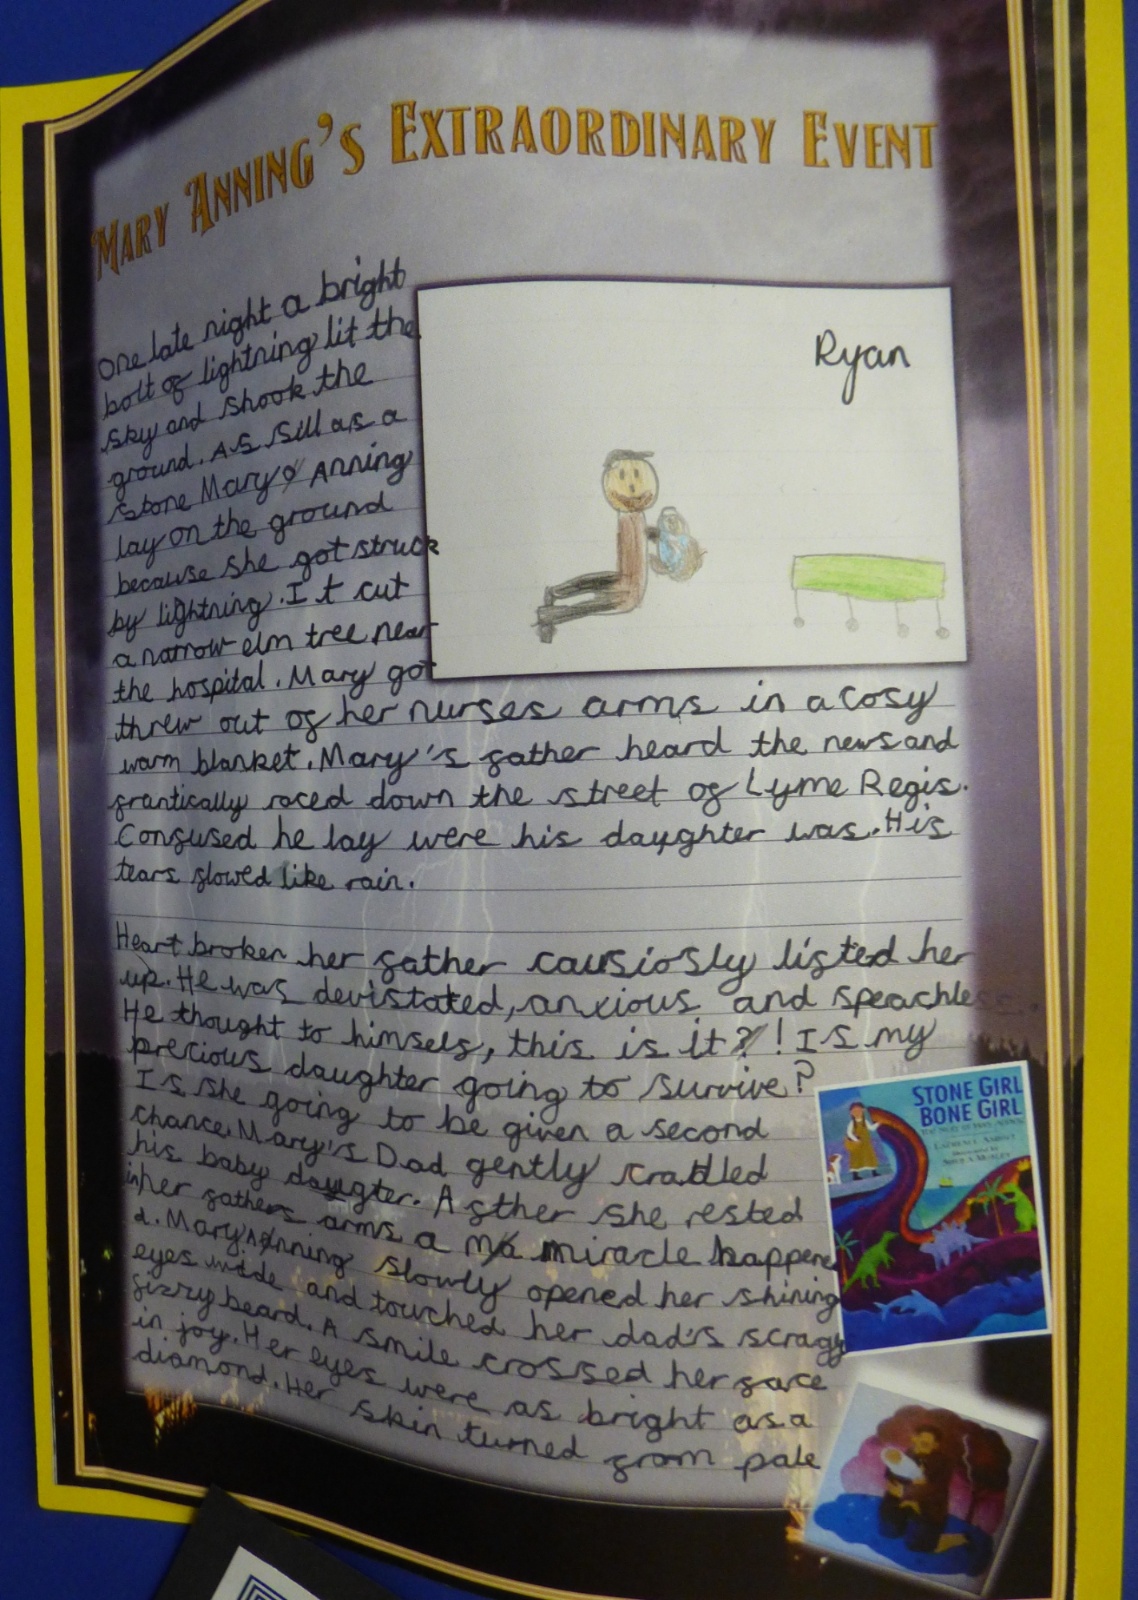 MARY ANNING'S EXTRAORDINARY EVENT
One late night a bright
bolt of lightning lit the
sky and shook the
ground. As sill as a
stone Mary Anning
lay on the ground
because she got struck
by lightning. It cut
a narrow elm tree near
the hospital. Mary got
threw out of her nurses arms in a cosy
warm blanket. Mary's father heard the news and
frantically raced down the street of Lyme Regis.
Confused he lay were his daughter was. His
tears flowed like rain.
Heart broken her father causiosly lifted her
up. He was devistated, anxious and speachless.
He thought to himself, this is it?! Is my
precious daughter going to survive?
Is she going to be given a second
chance. Mary's Dad gently cradled
his baby daugter. Afther she rested
in her fathers arms a miracle happene
d. Mary Anning slowly opened her shining
eyes wide and touched her dad's scragy
fizzy beard. A smile crossed her face
in joy. Her eyes were as bright as a
diamond. Her skin turned from pale
Ryan
STONE GIRL
BONE GIRL
LAURENCE ANHOLT